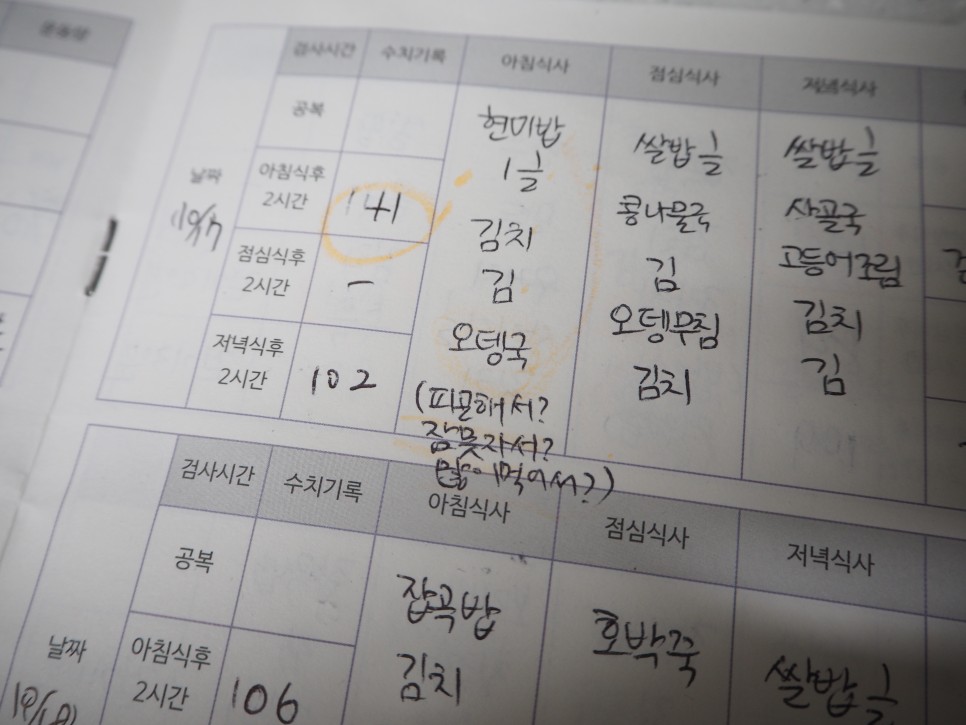 검사시간 수치기록 아침식사 점심식사 저녁식사
공복
날짜
아침식후
2시간
141
점심식후
2시간
-
저녁식후
2시간
102
현미밥
김치
김
오뎅국
(피곤해서?
잠못자서?
많이먹어서?)
쌀밥
콩나물국
김
오뎅무침
김치
쌀밥
사골국
고등어조림
김치
김
검사시간 수치기록 아침식사 점심식사 저녁식사
공복
날짜
10/18
아침식후
2시간
106
잡곡밥
김치
호박죽
쌀밥